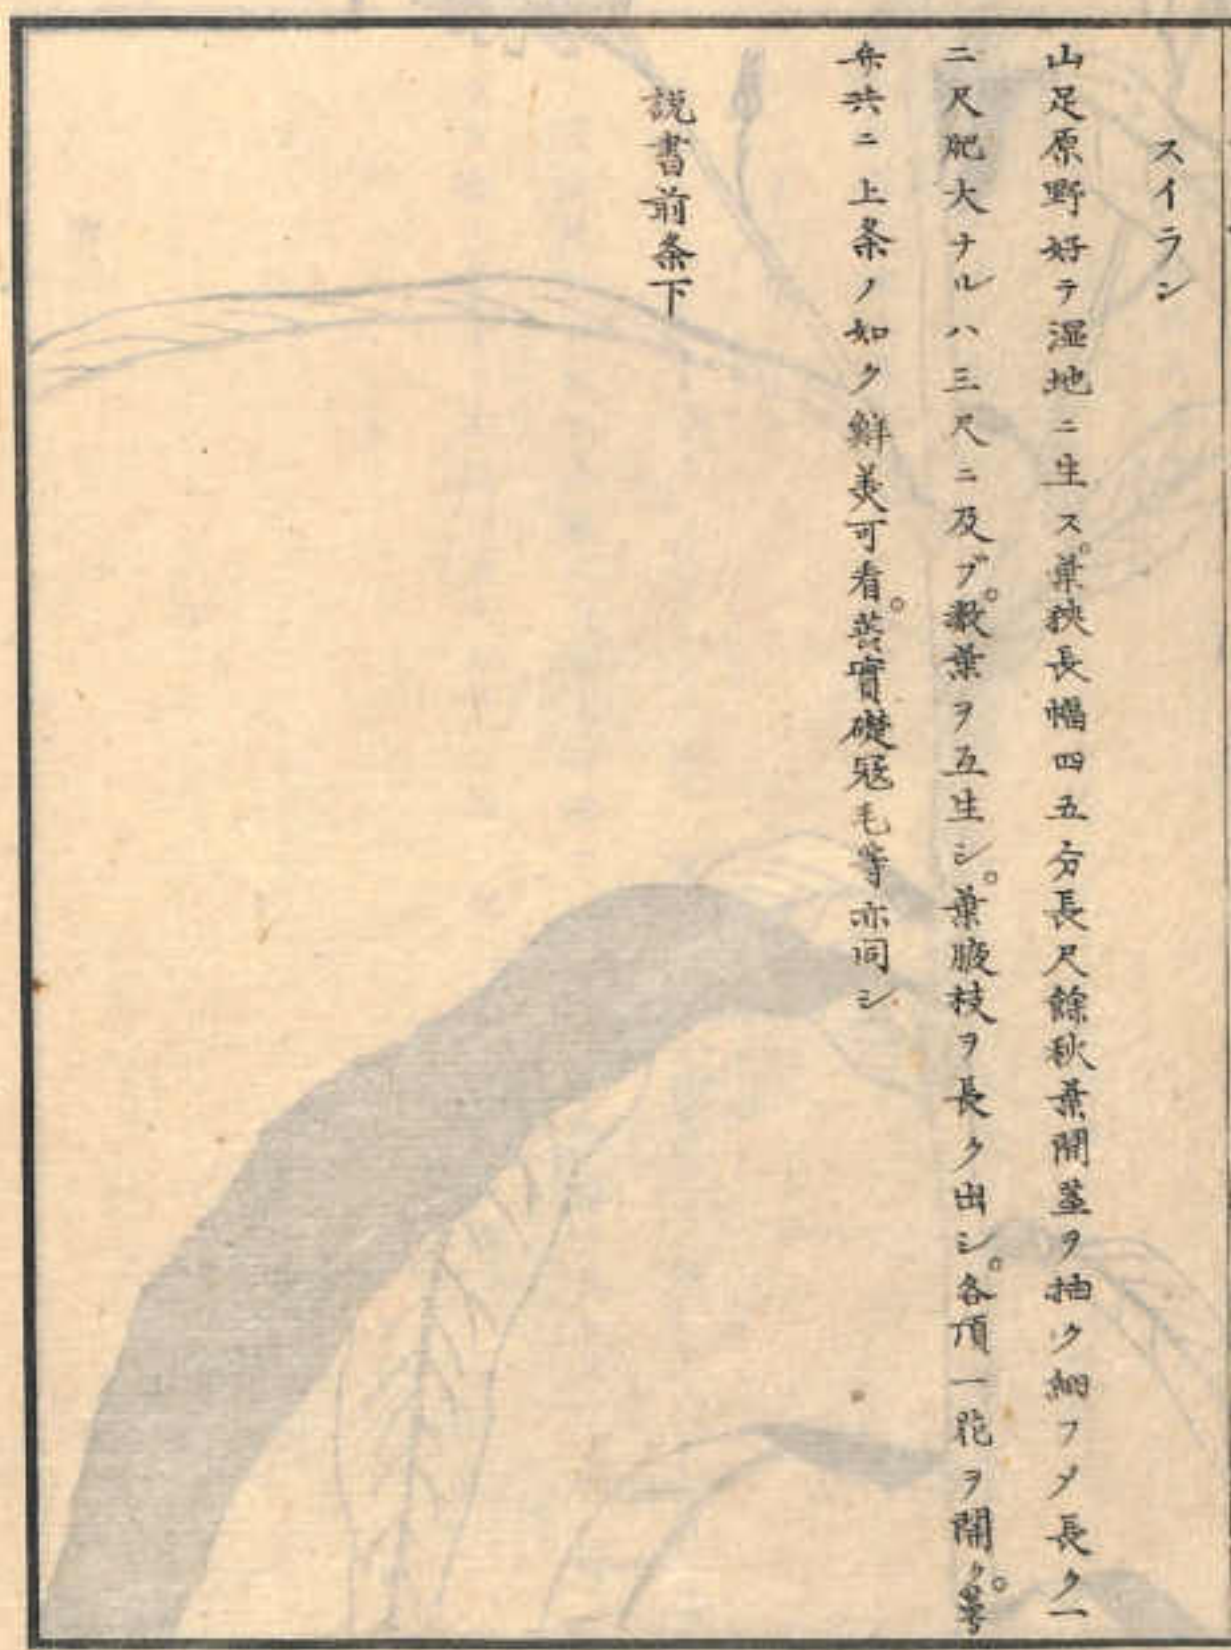 スイラン
山足原野好テ湿地ニ生ス。葉狹長幅四五分長尺餘秋葉間莖ヲ抽ク細フメ長ク一
二尺肥大ナルハ三尺ニ及ブ。数葉ヲ互生シ。葉腋枝ヲ長ク出シ。各頂一花ヲ開ク。萼
弁共ニ上条ノ如ク鮮美可看。苦實礎冠毛等亦同シ
説書前条下